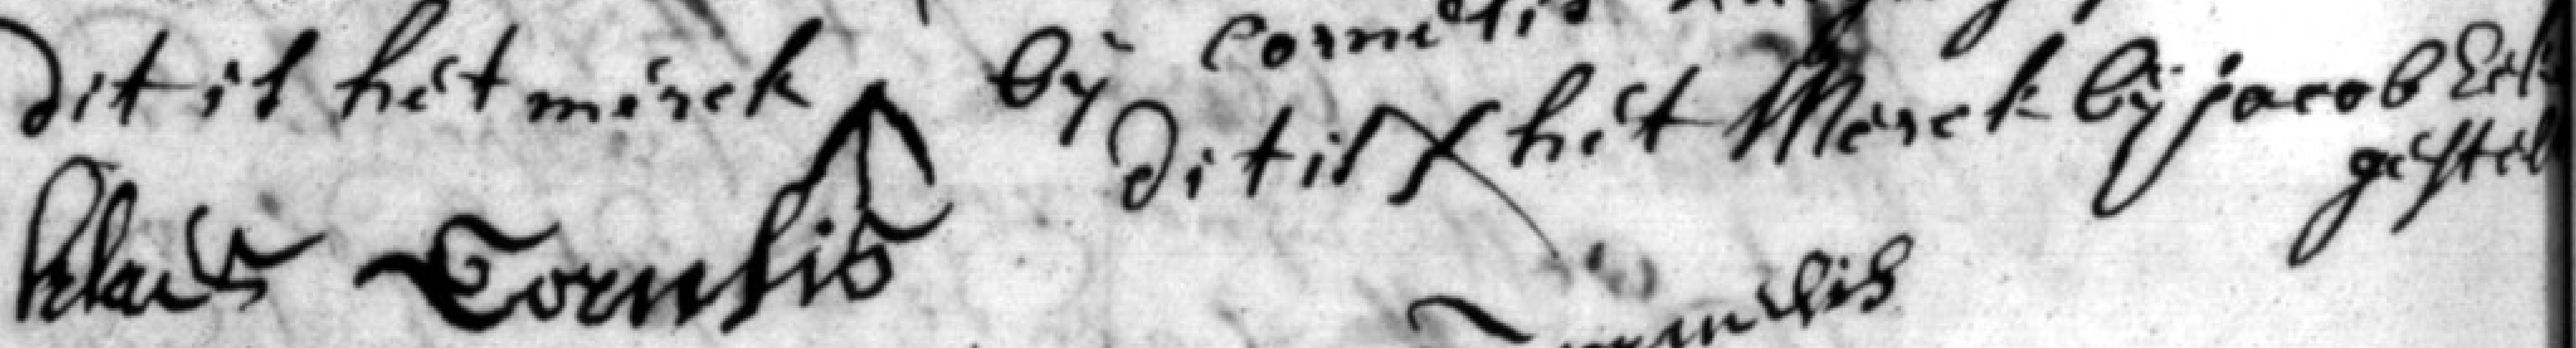 dit is het merck by Cornelis
dit is X het Merck by jacob
gestel
klaes Cornelis
Cornelis